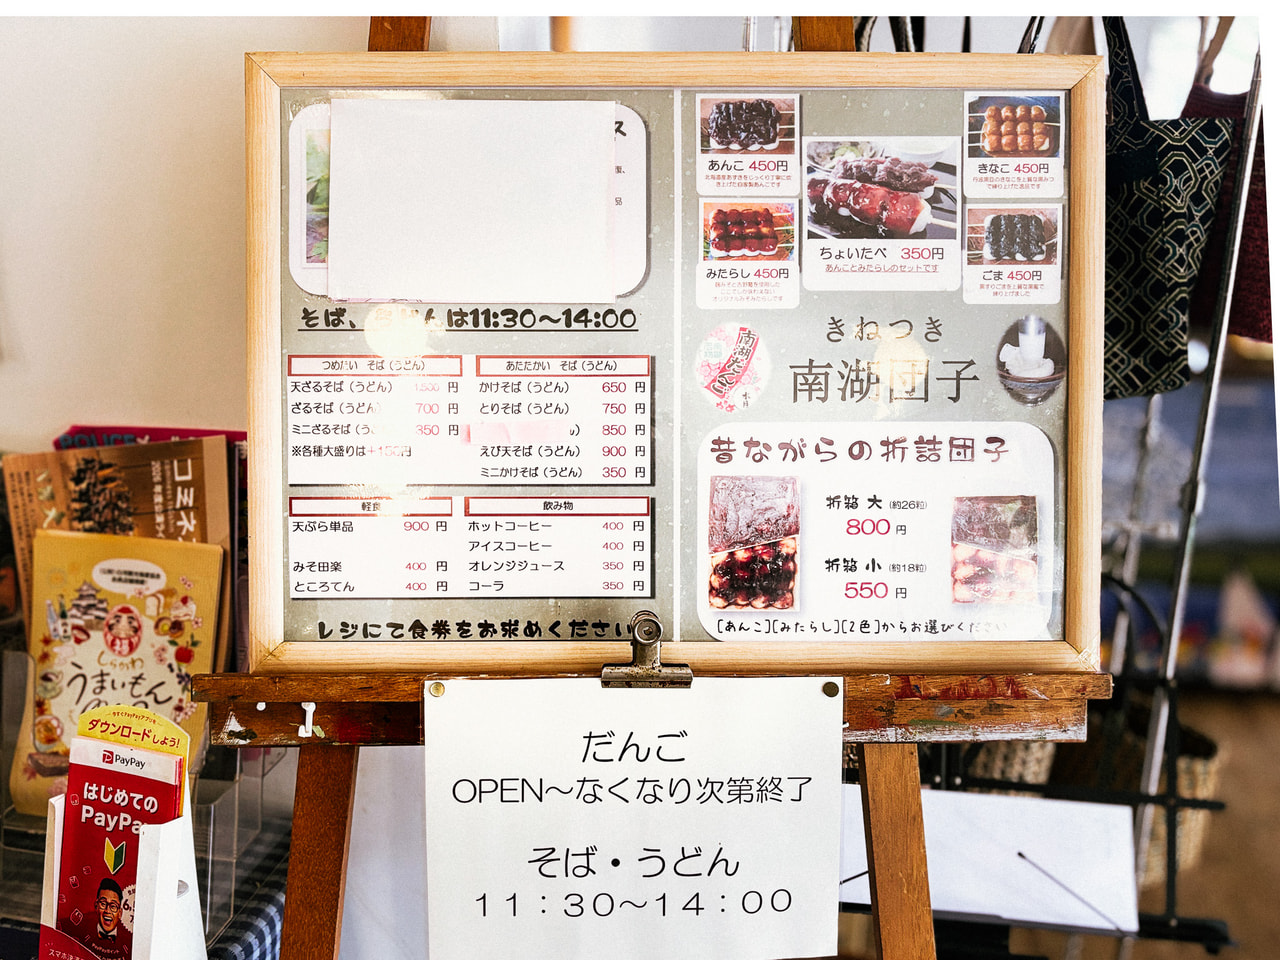 そば、うどんは11:30～14:00
つめたい そば（うどん）
天ざるそば（うどん） 1,500 円
ざるそば（うどん） 700 円
ミニざるそば（う 350 円
※各種大盛りは＋150円
あたたかい そば（うどん）
かけそば（うどん） 650 円
とりそば（うどん） 750 円
850 円
えび天そば（うどん） 900 円
ミニかけそば（うどん） 350 円
軽食
天ぷら単品 900 円
みそ田楽 400 円
ところてん 400 円
飲み物
ホットコーヒー 400 円
アイスコーヒー 400 円
オレンジジュース 350 円
コーラ 350 円
レジにて食券をお求めください
あんこ 450円
北海道産あずきをじっくり丁寧に炊
き上げた自家製あんこです
みたらし 450円
ちょいたべ 350円
あんことみたらしのセットです
きなこ 450円
ごま 450円
きねつき
南湖団子
南湖だんご
昔ながらの折詰団子
折箱 大 (約26粒)
800 円
折箱 小 (約18粒)
550 円
[あんこ][みたらし][2色]からお選びください
だんご
OPEN～なくなり次第終了
そば・うどん
１１：３０～１４：００
コミネ
しらかわ
うまいもん
今すぐPayPayアプリを
ダウンロードしよう!
PayPay
はじめての
PayPa